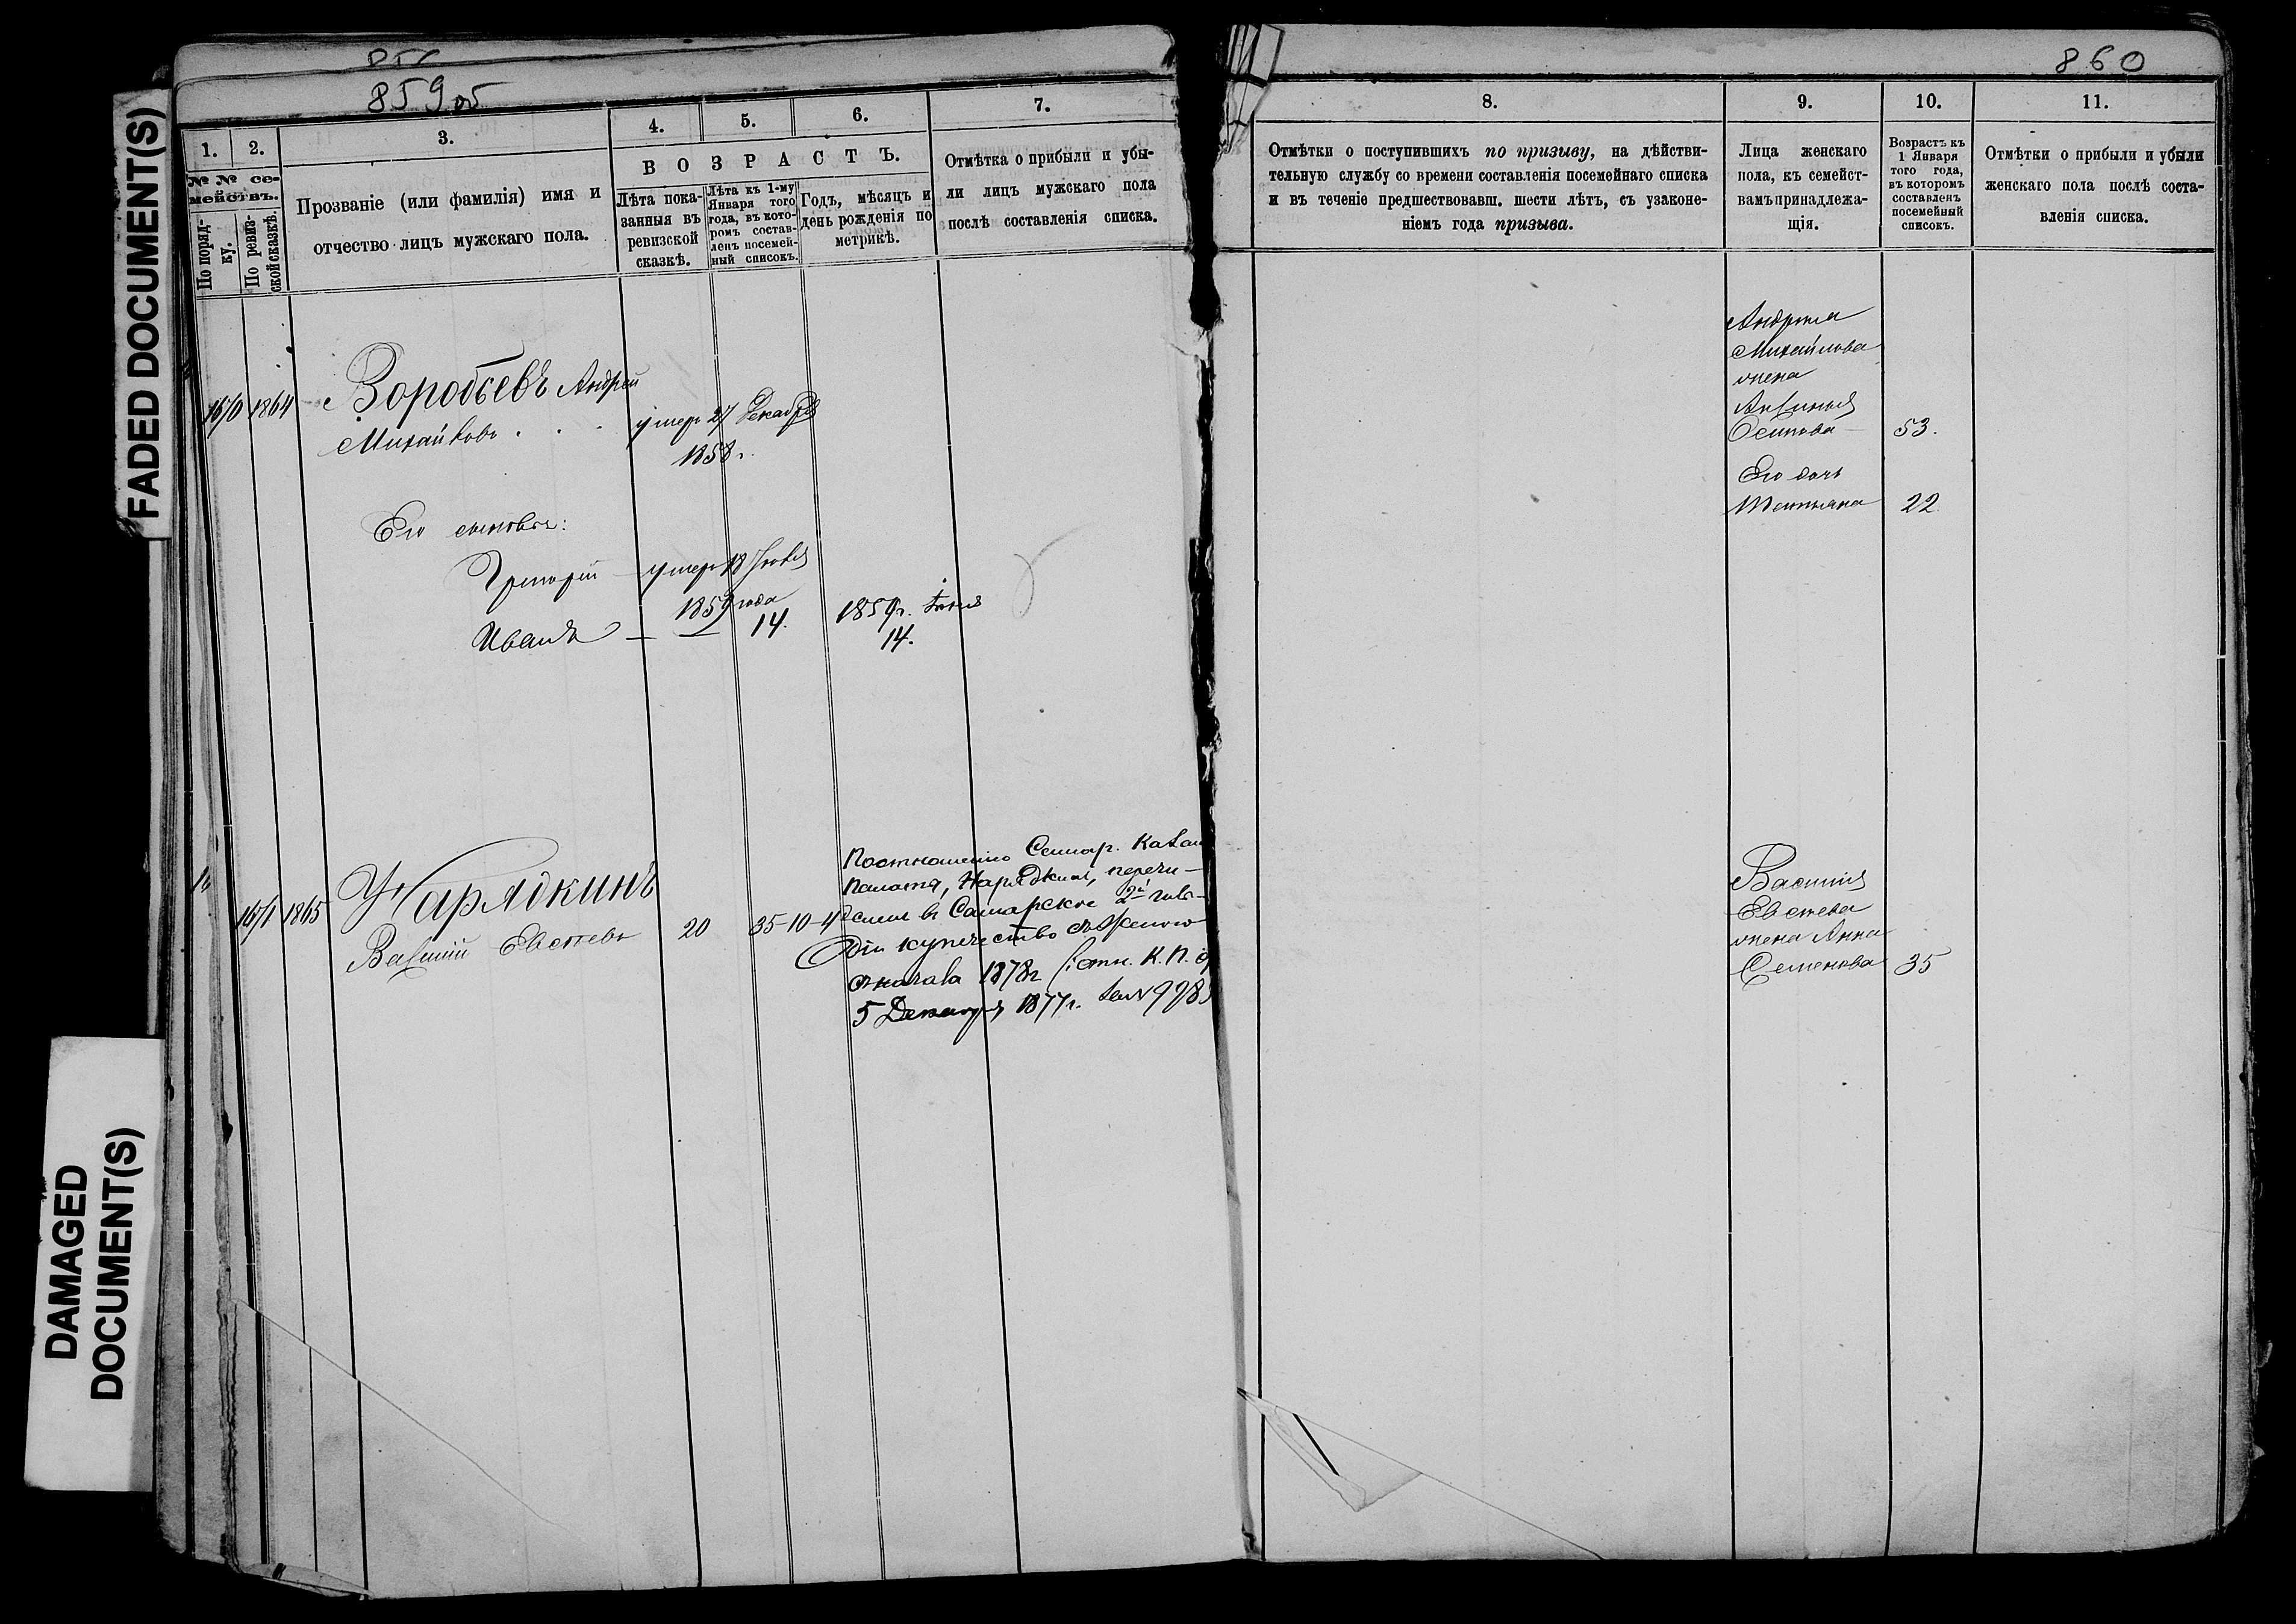 FADED DOCUMENT(S)
DAMAGED
DOCUMENT(S)
859 об
1.
2.
3.
4.
5.
6.
7.
№ № се-
мействъ.
По поряд-
ку.
По ревиз-
ской сказкѣ.
Прозваніе (или фамилія) имя и
отчество лицъ мужскаго пола.
ВОЗРАСТЪ.
Лѣта пока-
занныя въ
ревизской
сказкѣ.
Лѣта къ 1-му
Января того
года, въ кото-
ромъ состав-
ленъ посемей-
ный списокъ.
Годъ, мѣсяцъ и
день рожденія по
метрикѣ.
Отмѣтка о прибыли и убы-
ли лицъ мужскаго пола
послѣ составленія списка.
1670 1864
Воробьевъ Андрей
Михайловъ . . . умеръ 27 Декабря
1858 г.
Его сыновья:
Григорій – умеръ 18 Іюня
1859 года
Иванъ — — 14. 1859 г. Іюня
14.
1671 1865
Нарядкинъ
Василій Евстевъ 20 35-10-4
Самар. Казен
Палата, Нарядкинъ, перечи-
сленъ въ Самарское 2й гиль-
діи купечество съ женою
съ начала 1878 г (: отн. К. П. о
5 Декабря 1877 г. за №
860
8.
9.
10.
11.
Отмѣтки о поступившихъ по призыву, на дѣйстви-
тельную службу со времени составленія посемейнаго списка
и въ теченіе предшествовавш. шести лѣтъ, съ узаконе-
ніемъ года призыва.
Лица женскаго
пола, къ семейст-
вамъ принадлежа-
щія.
Возрастъ къ
1 Января
того года,
въ которомъ
составленъ
посемейный
списокъ.
Отмѣтки о прибыли и убыли
женскаго пола послѣ соста-
вленія списка.
Андрея
Михайлова
жена
Аксинья
Осипова – 53.
Его дочь
Татьяна 22
Василія
Евстева
жена Анна
Семенова 35